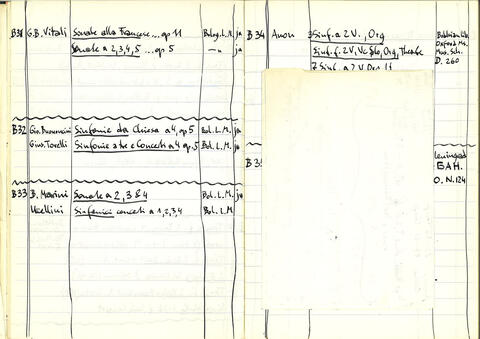 B31 G.B. Vitali Sonate alla Francese... op 11 Bolog. L.M. ja
Sonate a 2,3,4,5 ... op 5 –"– ja
B32 Gio. Bononcini Sinfonie da Chiesa a 4, op. 5 Bol. L.M. ja
Gius. Torelli Sinfonie a tre e Concerti a 4 op. 5 Bol. L.M. ja
B33 B. Marini Sonate a 2, 3 & 4 Bol. L.M. ja
Uccellini Sinfonici concerti a 1,2,3,4 Bol. L.M.
B34 Anon 3 Sinf. a 2 V., Org
Sinf. f. 2 V, Vc, Org, Theorbe
7 Sinf. a 2 V
Oxford Ms.
Mus. Sch.
D. 260
B35 Leningrad
БАН.
O. N. 124